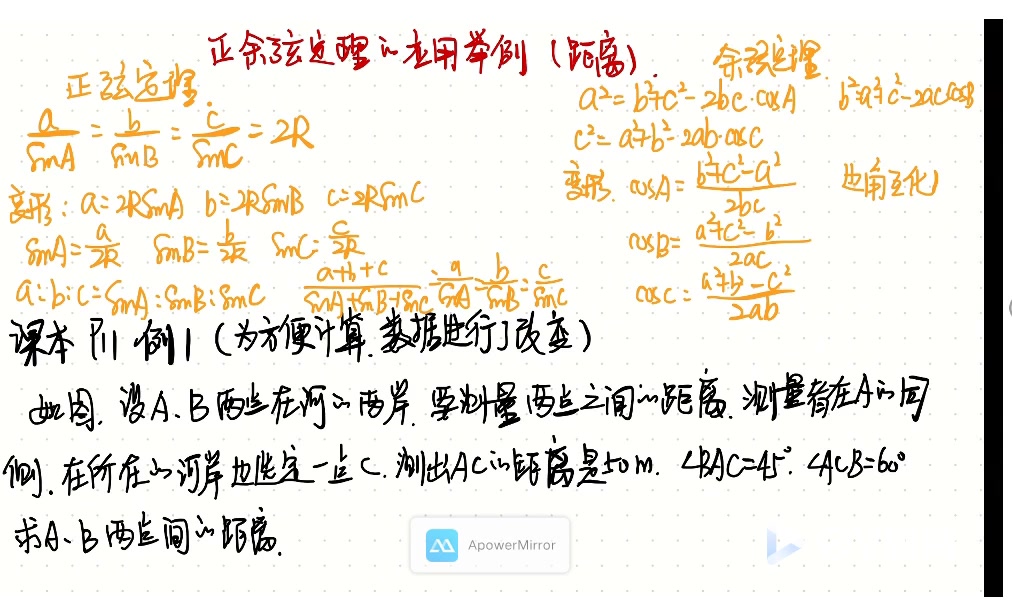 正余弦定理的应用举例（距离）.
正弦定理.
a/SinA = b/SinB = c/SinC = 2R
变形: a=2RSinA b=2RSinB c=2RSinC
SinA=a/2R SinB=b/2R SinC=c/2R
a:b:c=SinA:SinB:SinC (a+b+c)/(SinA+SinB+SinC)=a/SinA=b/SinB=c/SinC
余弦定理
a²=b²+c²-2bc·cosA b²=a²+c²-2accosB
c²=a²+b²-2ab·cosC
变形. cosA=(b²+c²-a²)/2bc 边角互化)
cosB=(a²+c²-b²)/2ac
cosC=(a²+b-c²)/2ab
课本P11 例1（为方便计算.数据进行了改变）
如图.设A、B两点在河的两岸.要测量两点之间的距离.测量者在A的同
侧.在所在的河岸边选定一点C.测出AC的距离是50m.∠BAC=45°.∠ACB=60°
求A、B两点间的距离.
ApowerMirror